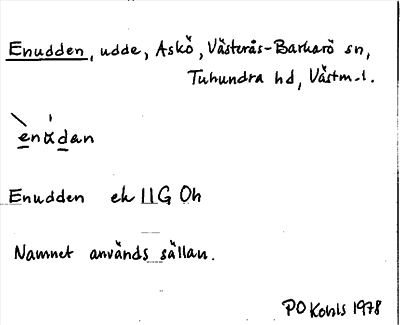 Enudden, udde, Askö, Västerås-Barkarö sn,
Tuhundra hd, Västm. l.
Enudden ek 11G 0h
Namnet används sällan.
PO Kohls 1978